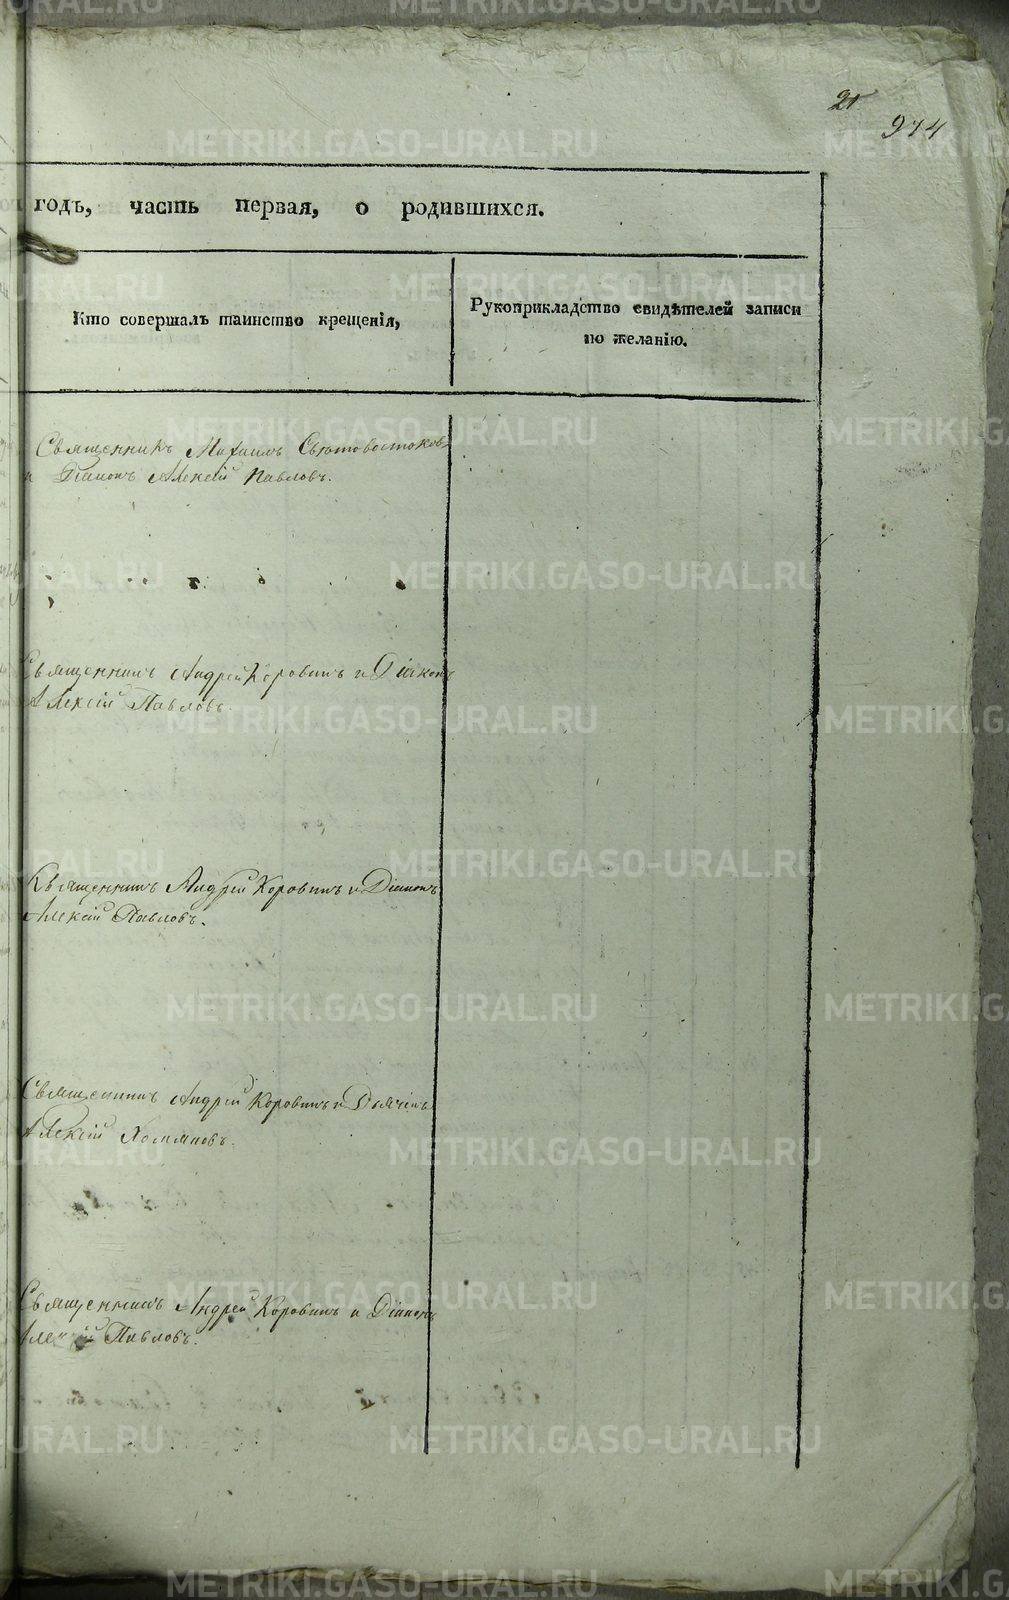 21
974
годъ, часть первая, о родившихся.
Кто совершалъ таинство крещенія,
Рукоприкладство свидѣтелей записи
по желанію.
Священникъ Михаилъ
и Діаконъ Алексій Павловъ.
Священникъ Андрей Коровинъ и Діаконъ
Алексій Павловъ.
Священникъ Андрей Коровинъ и Діаконъ
Алексій Павловъ.
Священникъ Андрей Коровинъ и Дьячекъ
Алексій
Священникъ Андрей Коровинъ и Діаконъ
Алексій Павловъ.
METRIKI.GASO-URAL.RU